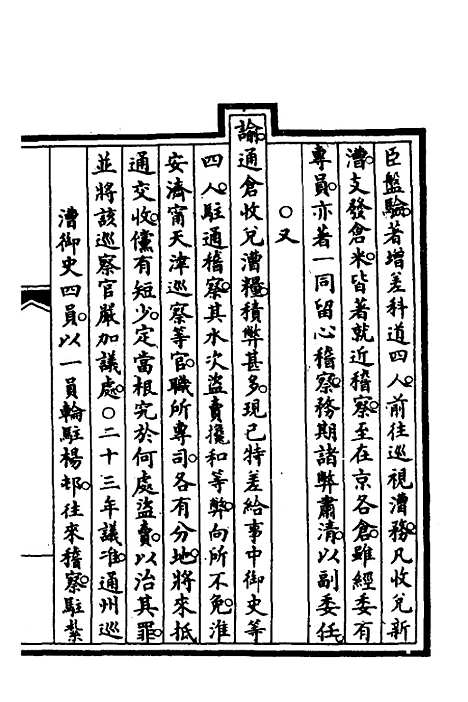 臣盤驗。著增差科道四人。前往巡視漕務。凡收兌新
漕。支發倉米。皆著就近稽察。至在京各倉。雖經委有
專員。亦著一同留心稽察。務期諸弊肅清。以副委任
○又
諭。通倉收兌漕糧。積弊甚多。現已特差給事中御史等
四人。駐通稽察。其水次盜賣攙和等弊。向所不免。淮
安濟甯天津巡察等官。職所專司。各有分地。將來抵
通交收。儻有短少。定當根究於何處盜賣。以治其罪。
並將該巡察官嚴加議處。○二十三年議准。通州巡
漕御史四員。以一員輪駐楊邨。往來稽察。駐紮